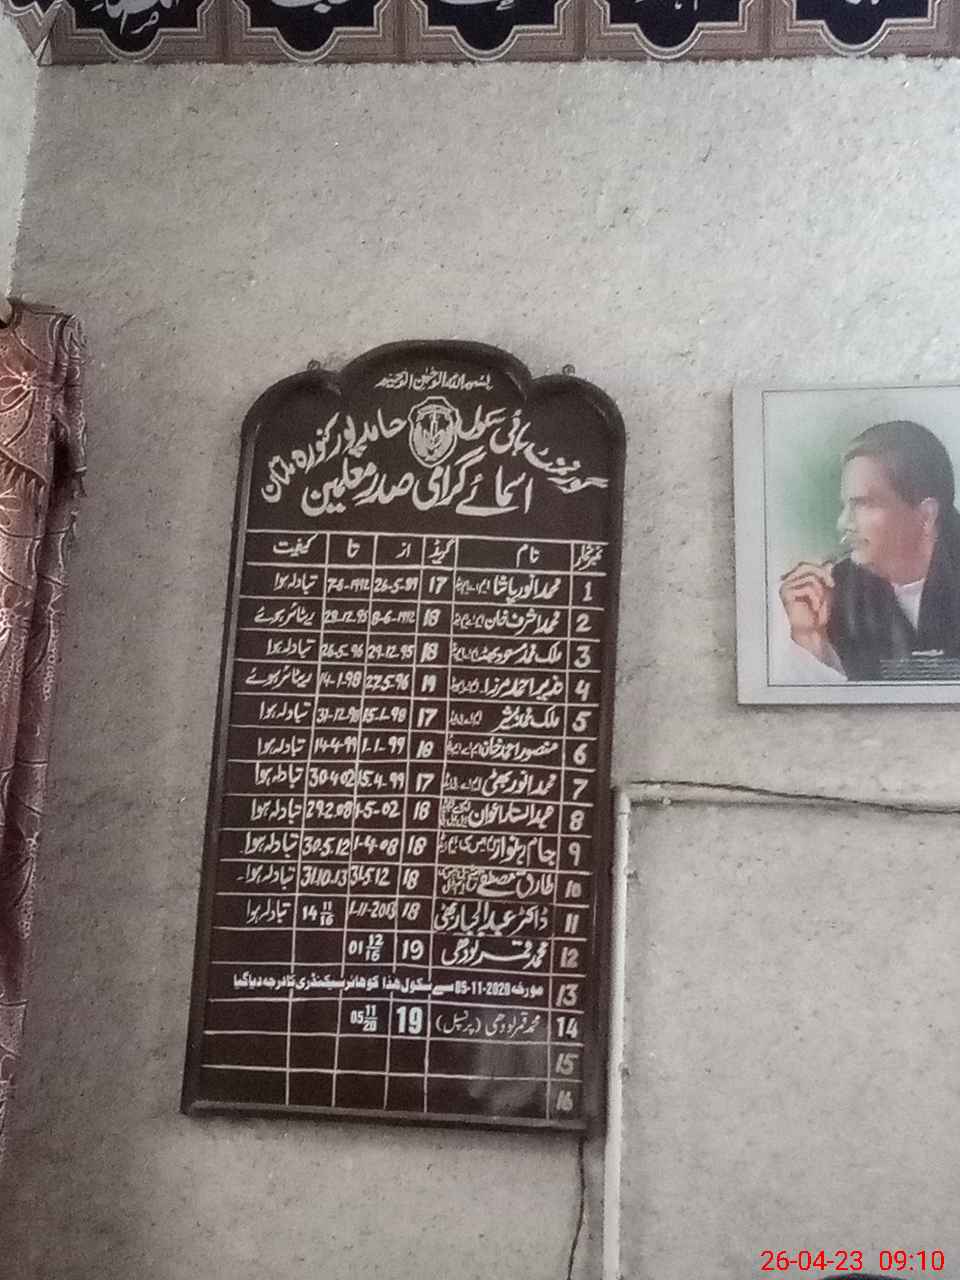 بسم اللہ الرحمن الرحیم
گورنمنٹ ہائی سکول حامد پور کنورہ ملتان
اسمائے گرامی صدر معلمین
نمبر شمار نام گریڈ از تا کیفیت
1 محمد انور پاشا 17 26-5-89 7-6-1992 تبادلہ ہوا
2 محمد اشرف خان 18 8-6-1992 28-12-95 ریٹائر ہوئے
3 ملک محمد مسعود بھٹہ 18 29-12-95 26-5-96 تبادلہ ہوا
4 نذیر احمد مرزا 19 27-5-96 14-1-98 ریٹائر ہوئے
5 ملک محمد بشیر 17 15-1-98 31-12-98 تبادلہ ہوا
6 منصور احمد خان 18 1-1-99 14-4-99 تبادلہ ہوا
7 محمد انور بھٹی 17 15-4-99 30-4-02 تبادلہ ہوا
8 عبدالستار اعوان 18 1-5-02 29.2.08 تبادلہ ہوا
9 جام ربنواز 18 1-4-08 30.5.12 تبادلہ ہوا
10 طارق مصطفے 18 31.5.12 31.10.13 تبادلہ ہوا۔
11 ڈاکٹر عبدالجبار بھٹی 18 1-11-2013 14 11/16 تبادلہ ہوا
12 محمد قمر لودھی 19 01 12/16
13 مورخہ 05-11-2020 سے سکول ھذا کو ھائر سیکنڈری کا درجہ دیا گیا
14 محمد قمر لودھی (پرنسپل) 19 05 11/20
15
16
26-04-23 09:10